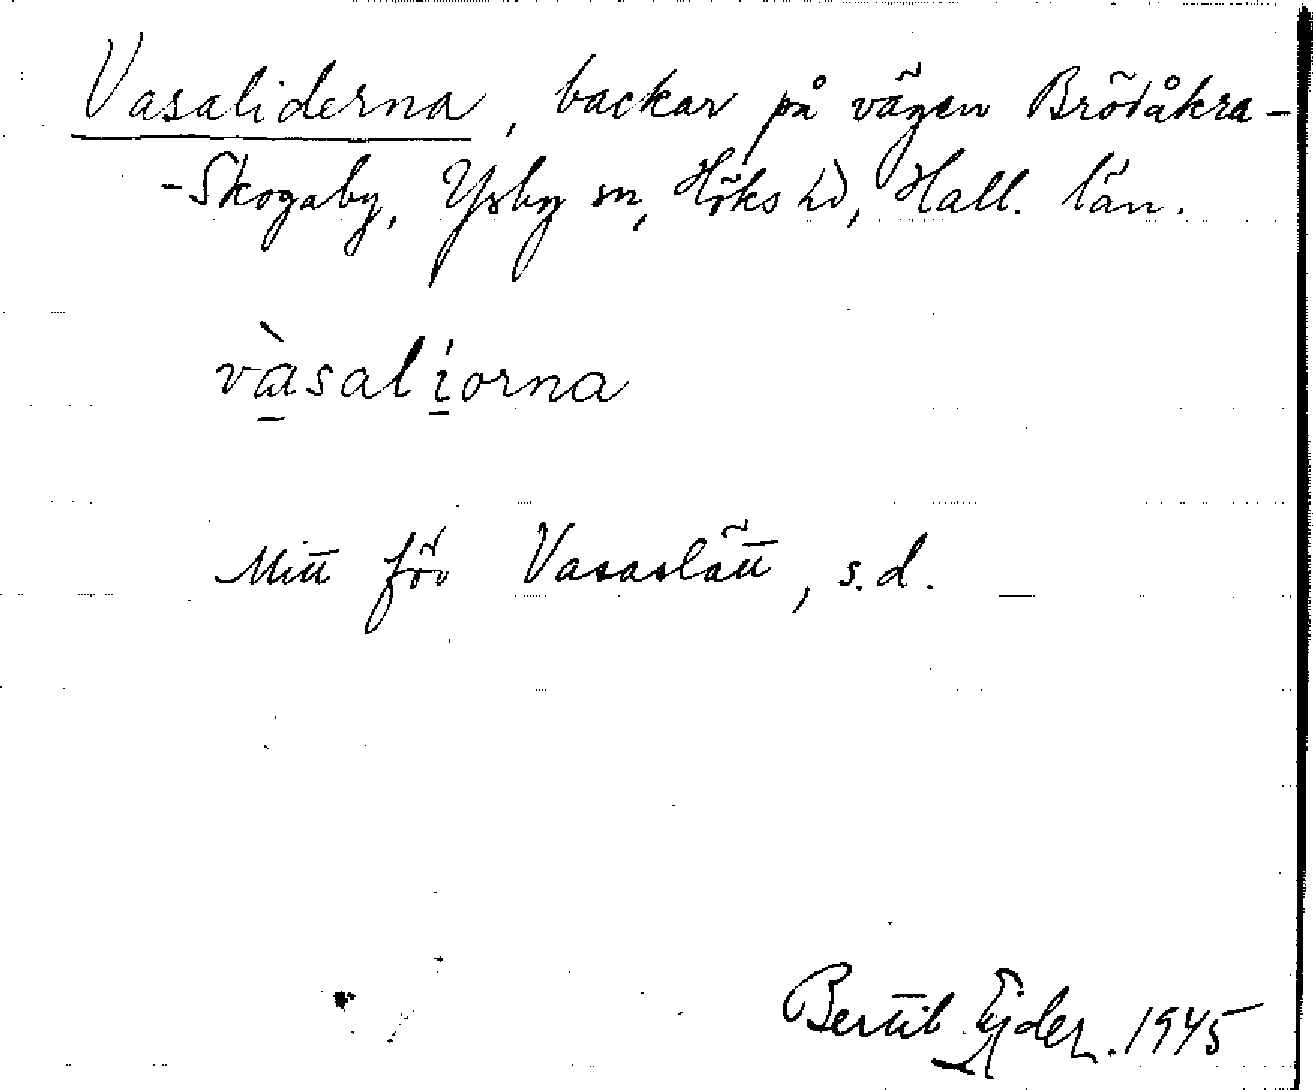 Vasaliderna, backar på vägen Brödåkra-
-Skogaby, Ysby sn, Höks hd, Hall. län.
vàsalíorna
Mitt för Vasaslätt, s.d.
Bertil Ejder. 1945